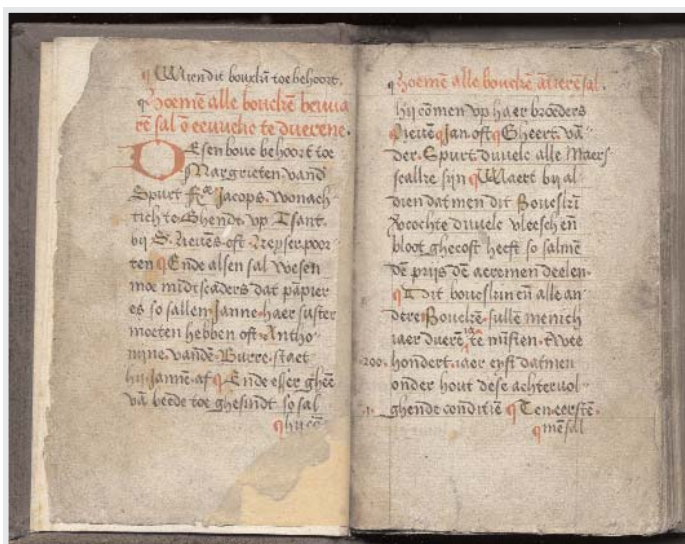 ¶ Wien dit bouxkin toe behoort.
¶ Hoemen alle boucken bewa
ren sal om eeuwiche te duerene.
Desen bouc behoort toe
Margrieten vand
Spurt Jacops. wonach
tich te Ghendt. up Tsant.
bij S. Lievens. oft Keyserpoor
ten ¶ Ende alsen sal wesen
moe midtscaders dat pampier
es so sallem Janne haer suster
moeten hebben oft Antho
nine. vanden Burre. staet
hij Jannen af ¶ Ende esser gheen
van beede toe ghesindt so sal
¶ hij com
¶ Hoemen alle boucken
hij commen up haer broeders
Lieven ¶ Jan. oft ¶ Gheert. van
der. Spurt duvele alle Maers
scallre sijn ¶ Waert by al
dien datmen dit Boucskin
vcochte duvele vleesch en
bloot ghecost heeft so salmen
den prijs den aermen deelen.
¶ Dit boucskin en alle an
dere Boucken. sullen menich
iaer dueren, te minsten. twee
200. hondert. iaer eyst datmen
onder hout dese achtervol
.1. ghende conditien ¶ Ten eersten.
¶ men sal